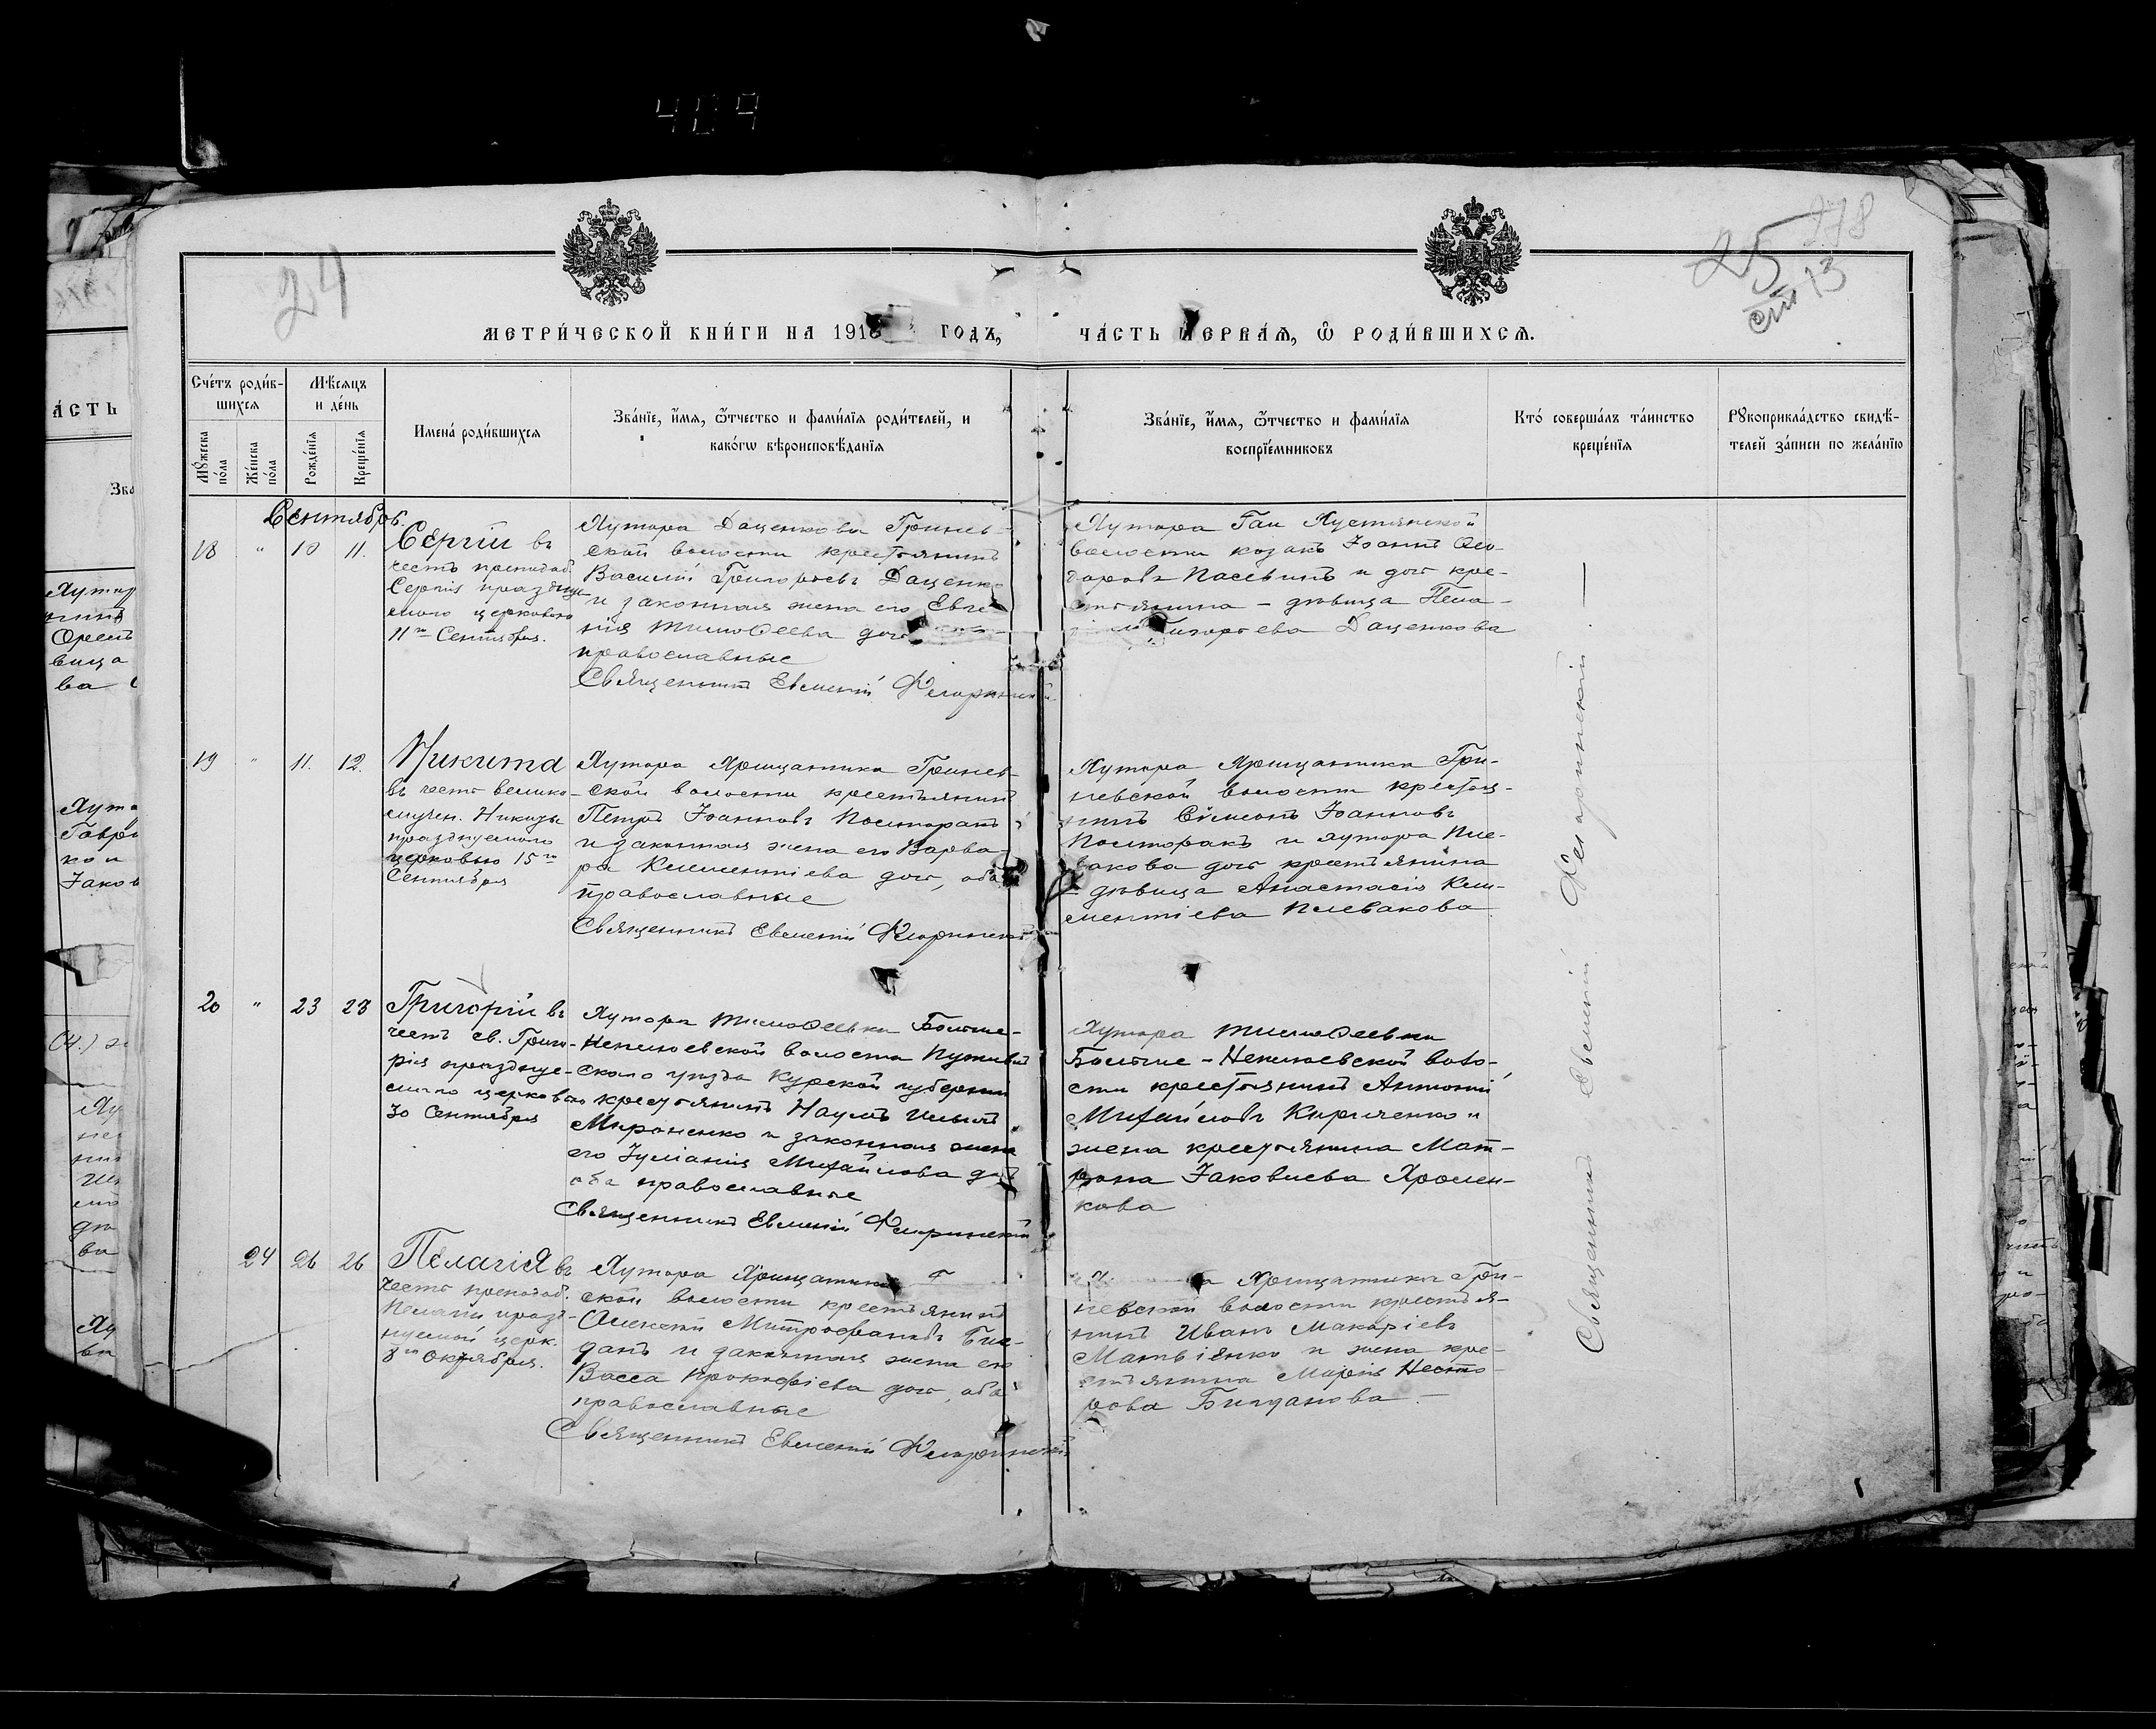 409
24
25
278
МЕТРИ́ЧЕСКОЙ КНИ́ГИ НА 191 ГОДЪ,
ЧА́СТЬ ПЕРВА́Ѧ, Ѽ РОДИ́ВШИХСѦ.
Сче́тъ роди́в-
шихсѧ
Мѣ́сѧцъ
и де́нь
Мꙋ́жеска
по́ла
Же́нска
по́ла
Рожде́нїѧ
Креще́нїѧ
Имена́ роди́вшихсѧ
Зва́нїе, и́мѧ, ѻ҆́тчество и фами́лїѧ роди́телей, и
како́гѡ вѣроисповѣ́данїѧ
Зва́нїе, и́мѧ, ѻ҆́тчество и фами́лїѧ
воспрїе́мниковъ
Кто́ соверша́лъ та́инство
креще́нїѧ
Рꙋкоприкла́дство свидѣ́-
телей за́писи по жела́нїю
Сентябрь.
18 " 10 11.
Сергій въ
честь преподоб.
Сергія праздну
емаго церковью
11го Сентября.
Хутора Даценкова Гринев-
ской волости крестьянинъ
Василій Григорьевъ Даценко
и законная жена его Евге
нія Тимоѳеева
православные
Священникъ Евменій Флоринскій
Хутора Гаи Хустянской
волости козакъ Іоаннъ Ѳео-
доровъ и дочь кре-
стьянина – дѣвица Пела-
Григорьева Даценкова
19 " 11. 12.
Никита
въ честь велико-
мучен. Никиты
празднуемаго
церковью 15го
Сентября
Хутора Хрищатика Гринев-
ской волости крестьянинъ
Петръ Іоанновъ Полторакъ
и законная жена его Варва-
ра Климентіева доч, оба
православные
Священникъ Евменій Флоринскій
Хутора Хрищатика Гри-
невской волости крестья-
нинъ Сѵмеонъ Іоанновъ
Полторакъ и хутора Пле-
вакова доч крестьянина
– дѣвица Анастасія Кли-
ментіева Плевакова
20 " 23 23
Григорій въ
честь св. Григо-
рія праздуе-
маго церковью
30 Сентября
Хутора Тимоѳеевки Больше-
Неплюевской волости Путивль
скаго уѣзда Курской губерніи
крестьянинъ Наумъ Ильинъ
Мироненко и законная жена
его Іуліанія Михайлова доч
оба православные
Священникъ Евменій Флоринскій
Хутора Тимоѳеевки
Больше-Неплюевской воло-
сти крестьянинъ Антоній
Михайловъ Кириченко и
жена крестьянина Мат-
рона Іаковлева Хромен-
кова
24 26 26
Пелагія въ
честь преподоб.
Пелагіи празд-
нуемой церк.
8го Октября.
Хутора Хрищатика Г
ской волости крестьянинъ
Алексій Митрофановъ Бил-
данъ и законная жена его
Васса Прокофіева доч, оба
православные
Священникъ Евменій Флоринскій
Хрищатика Гри-
невской волости крестья-
нинъ Иванъ Макаріевъ
Матвіенко и жена кре-
стьянина Марія Несто-
рова Билданова –
Священникъ Евменій Флоринскій